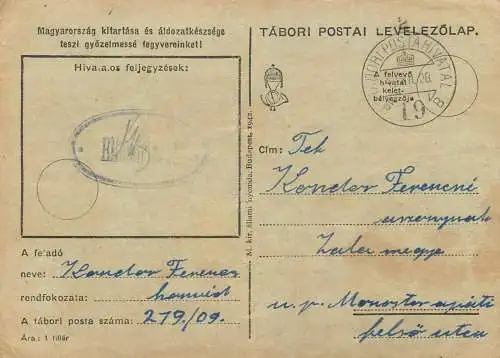 Magyarország kitartása és áldozatkészsége
teszi győzelmessé fegyvereinket!
Hivatalos feljegyzések:
A feladó
neve: Kondor Ferencz
rendfokozata: honvéd
A tábori posta száma: 219/09.
Ára: 1 fillér
M. kir. állami nyomda, Budapest, 1942.
TÁBORI POSTAI LEVELEZŐLAP.
TÁBORI POSTAHIVATAL
A felvevő
hivatal
kelet-
bélyegzője
19
Cím: Tek
Kondor Ferencné
asszonynak
Zala megye
u. p. Monostorapáti
felső utca